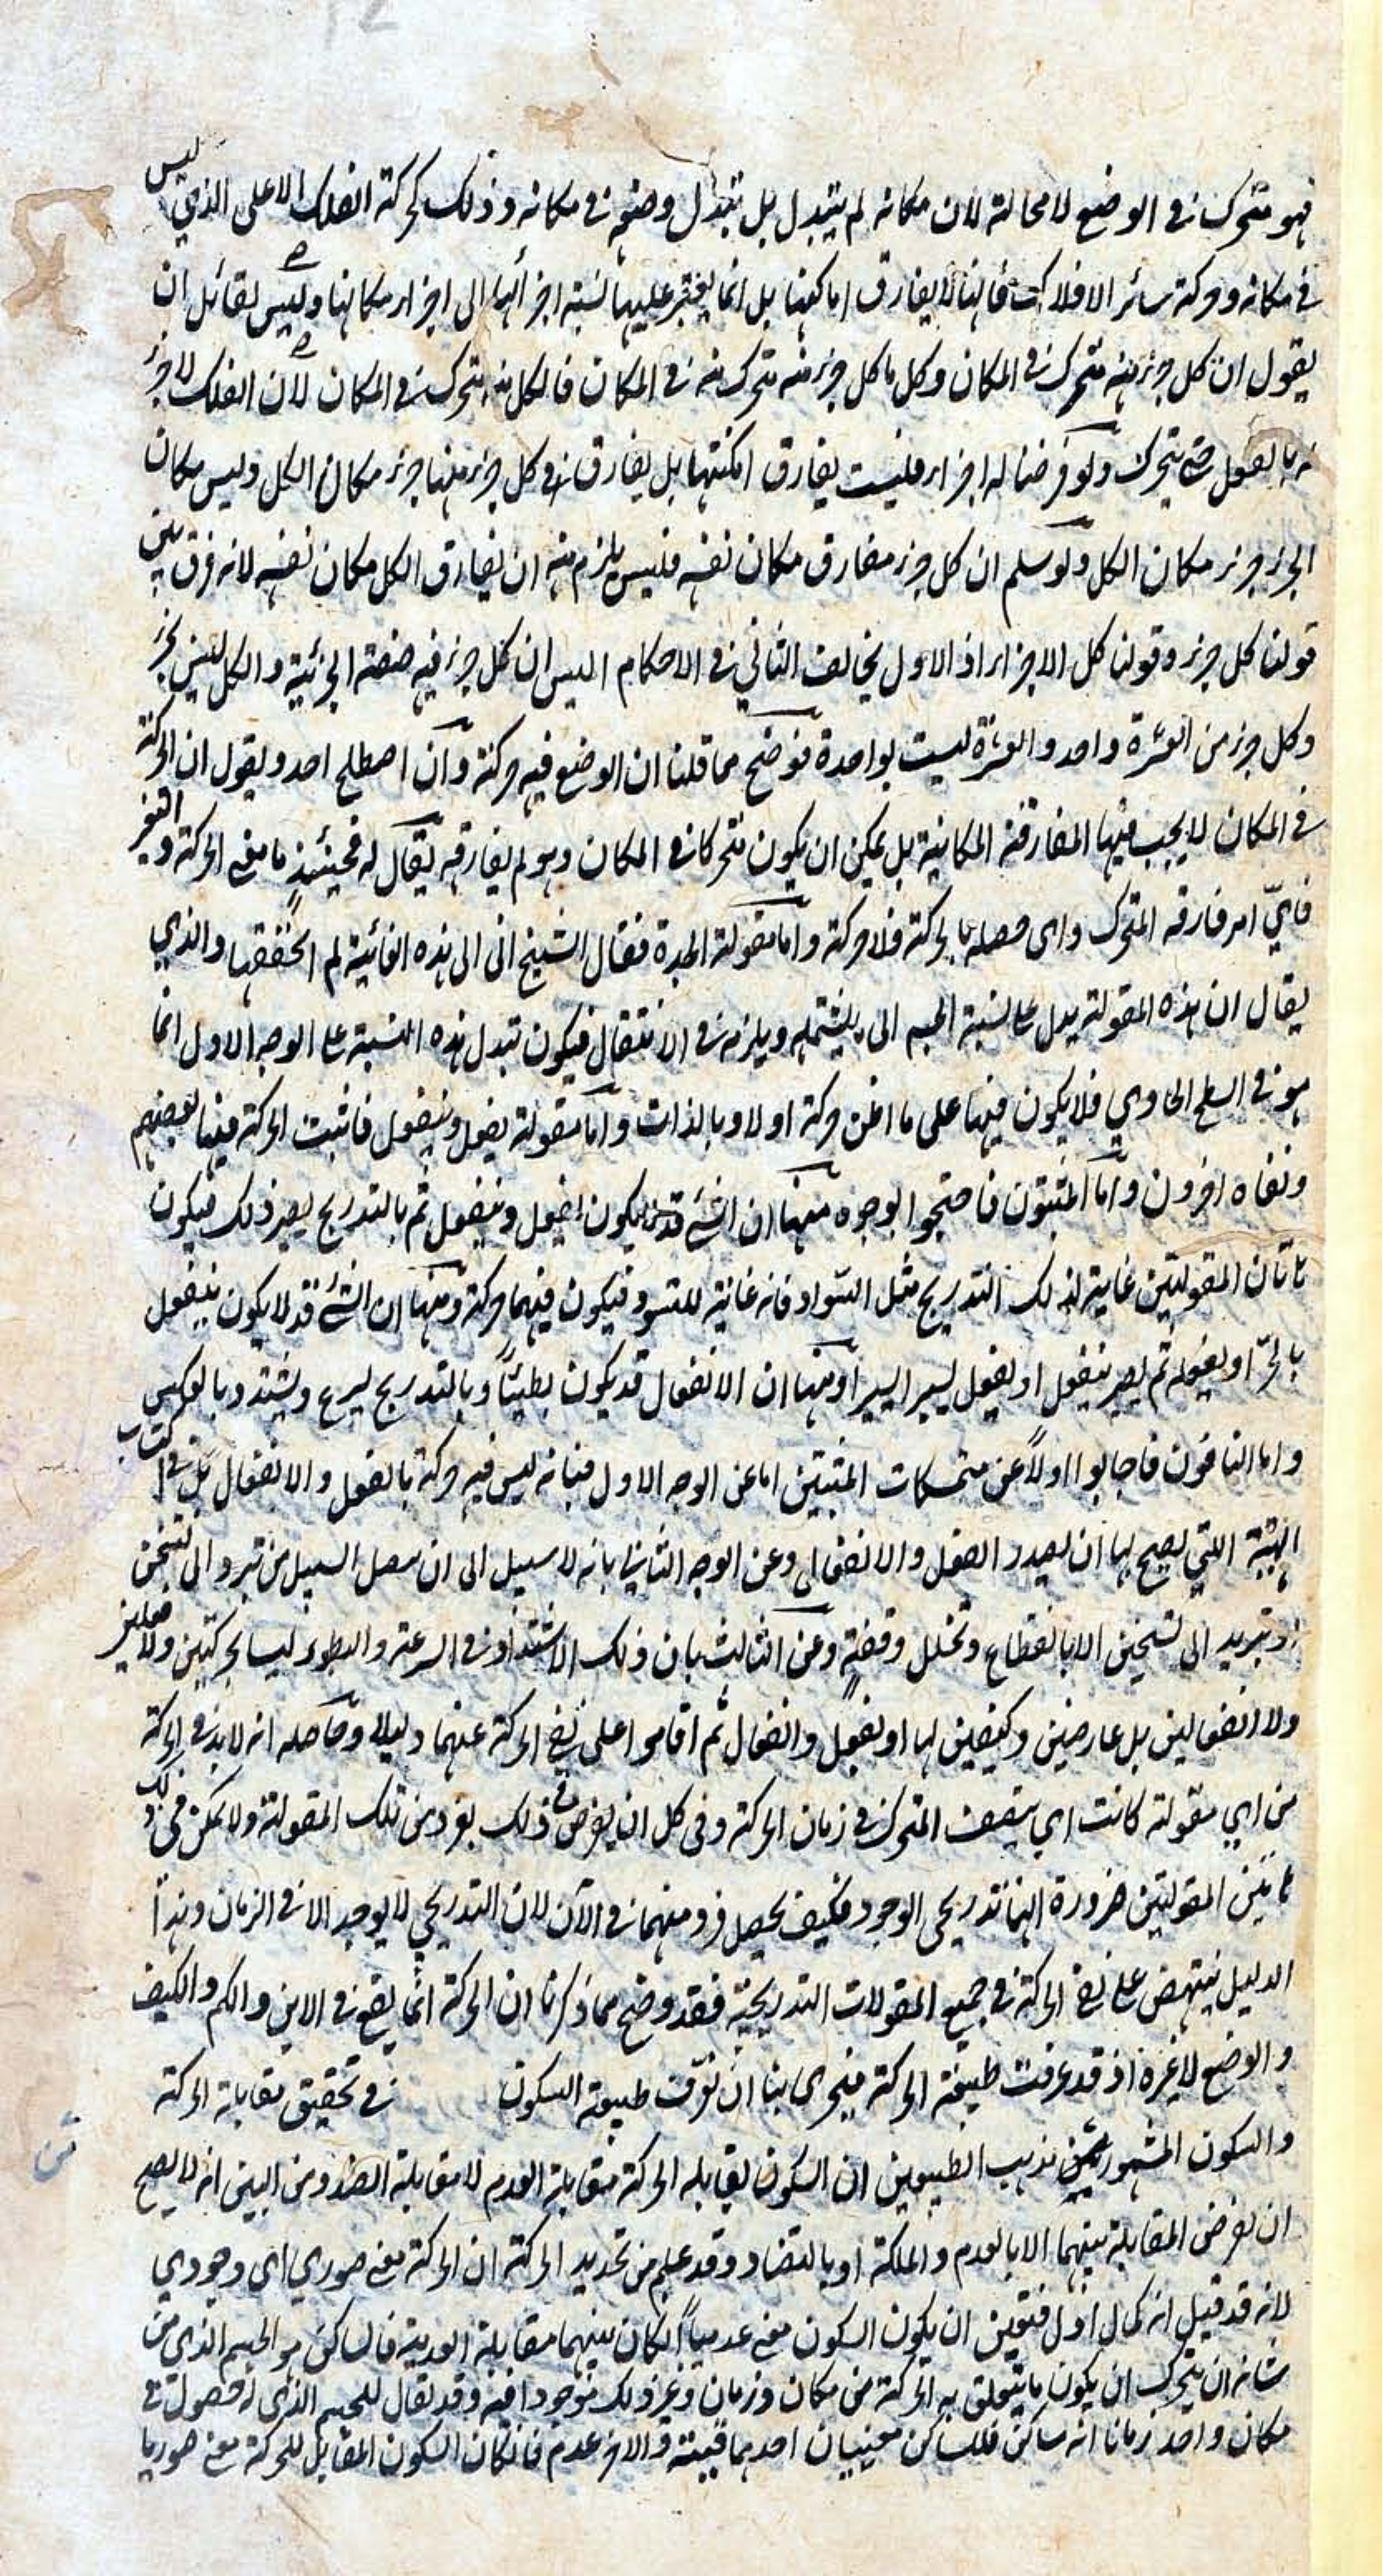 فهو متحرك في الوضع لا محالة لان مكانه لم يتبدل بل تبدل وضعه في مكانه وذلك كحركة الفلك الاعلى الذي ليس
في مكانه وحركة سائر الافلاك فانها لا يفارق اماكنها بل انما يتغير عليها نسبة اجزائها الى اجزاء مكانها وليس لقائل ان
يقول ان كل جزء منه متحرك في المكان وكل ما كل جزء منه متحرك منه في المكان فالكل منه متحرك في المكان لان الفلك لا جزء
له بالفعل حتى يتحرك ولو فرضنا له اجزاء فليست يفارق امكنتها بل يفارق كل جزء منها جزء مكان الكل وليس مكان
الجزء جزء مكان الكل ولو سلم ان كل جزء مفارق مكان نفسه فليس يلزم منه ان يفارق الكل مكان نفسه لانه فرق بين
قولنا كل جزء وقولنا كل الاجزاء اذ الاول يخالف الثاني في الاحكام اليس ان كل جزء فيه صفة الجزئية والكل ليس بجزء
وكل جزء من العشرة واحد والعشرة ليست بواحدة فوضح مما قلنا ان الوضع فيه حركة وان اصطلح احد ويقول ان الحركة
في المكان لا يجب فيها المفارقة المكانية بل يمكن ان يكون متحركا في المكان وهو لم يفارقه يقال له فحينئذ ما معنى الحركة والتغير
فاي امر فارقه المتحرك واي حصله بالحركة فلا حركة واما مقولة الجدة فقال الشيخ اني الى هذه الغائية لم اتحققها والذي
يقال ان هذه المقولة يدل على نسبة الجسم الى ما يشتمله ويلزمه في الانتقال فيكون تبدل هذه النسبة على الوجه الاول انما
هو في السطح الحاوي فلا يكون فيها على ما اظن حركة اولا وبالذات واما مقولة يفعل وينفعل فاثبت الحركة فيها بعضهم
ونفاه اخرون واما المثبتون فاحتجوا بوجوه منها ان الشئ قد لا يكون يفعل وينفعل ثم بالتدريج يصير ذلك فيكون
هاتان المقولتين غاية لذلك التدريج مثل السواد فانه غاية للتسود فيكون فيهما حركة ومنها ان الشئ قد لا يكون ينفعل
بالجزء او يفعله ثم يصير ينفعل او يفعل يسيرا يسيرا ومنها ان الانفعال قد يكون بطيئا وبالتدريج يسرع ويشتد وبالعكس
واما النافون فاجابوا اولا عن متمسكات المثبتين اما عن الوجه الاول فبانه ليس فيه حركة بالفعل والانفعال بل في اكتساب
الهيئة التي يصح بها ان يصدر الفعل والانفعال وعن الوجه الثاني بانه لا سبيل الى ان يصل السبيل من تبرد الى تسخن
او تبريد الى تسخين الا بانقطاع وتخلل وقفة وعن الثالث بان ذلك الاشتداد في السرعة والبطوء ليسا بحركتين ولا فعلين
ولا انفعالين بل عارضين وكيفيتين لها او لفعل وانفعال ثم اقاموا على نفي الحركة عنهما دليلا وحاصله انه لا بد في الحركة
من اي مقولة كانت اي يتصف المتحرك في زمان الحركة وفي كل ان يفرض في ذلك بفرد من تلك المقولة ولا يمكن في ذلك
هاتين المقولتين ضرورة انهما تدريجي الوجود فكيف يحصل فرد منهما في الآن لان التدريجي لا يوجد الا في الزمان وهذا
الدليل ينتهض على نفي الحركة في جميع المقولات التدريجية فقد وضح مما ذكرنا ان الحركة انما يقع في الاين والكم والكيف
والوضع لا غيره اذ قد عرفت طبيعة الحركة فيحرى بنا ان نعرف طبيعة السكون في تحقيق مقابلة الحركة
والسكون المشهور من مذهب الطبيعيين ان السكون يقابله الحركة مقابلة العدم لا مقابلة الضد ومن البين انه لا يصح
ان يفرض المقابلة بينهما الا بالعدم والملكة او بالتضاد وقد علم من تحديد الحركة ان الحركة معنى صوري اي وجودي
لانه قد قيل انه كمال اول فتعين ان يكون السكون معنى عدميا لكان بينهما مقابلة العدمية فالساكن هو الجسم الذي من
شانه ان يتحرك ان يكون ما يتعلق به الحركة من مكان وزمان وغير ذلك موجودا فيه وقد يقال للجسم الذي له حصول في
مكان واحد زمانا انه ساكن فللساكن معنيان احدهما قنية والاخر عدم فان كان السكون المقابل للحركة معنى صوريا